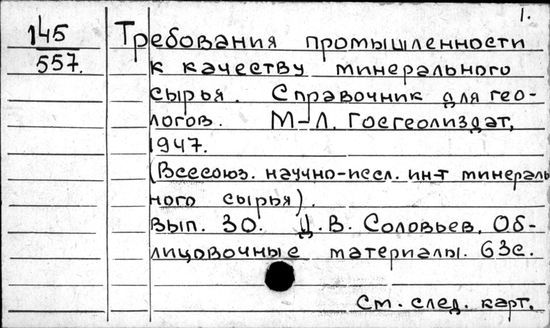 1.
145
557.
Требования промышленности
к качеству минерального
сырья. Справочник для гео-
логов. М-Л. Госгеолиздат,
1947.
(Всесоюз. научно-иссл. ин-т минераль
ного сырья).
Вып. 30. Д.В. Соловьев. Об-
лицовочные материалы. 63с.
См. след. карт.